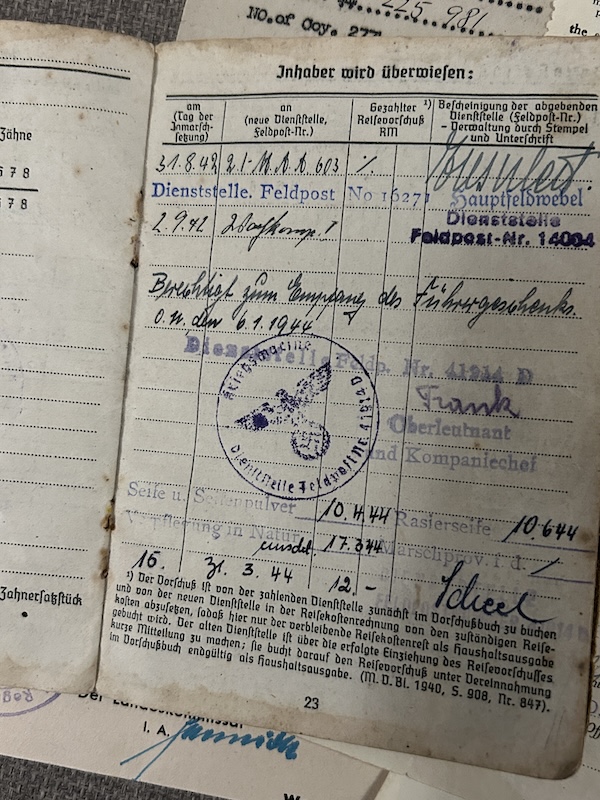 225 981
NO. of Coy. 277
the
Inhaber wird überwiesen:
am (Tag der Inmarschsetzung)
an (neue Dienststelle, Feldpost-Nr.)
Gezahlter ¹) Reisevorschuß RM
Bescheinigung der abgebenden Dienststelle (Feldpost-Nr.) - Verwaltung durch Stempel und Unterschrift
31.8.42 21-M.A.A 603 ٪
Dienststelle. Feldpost No 16271 Hauptfeldwebel
Dienststelle
2.9.42
Feldpost-Nr. 14004
Berechtigt zum Empfang des Führergeschenks.
O.U. den 6.1.1944
Dienststelle Feldp. Nr. 41914 D
Frank
Oberleutnant
und Kompaniechef
Kriegsmarine
Dienststelle Feldpost Nr. 41914 D
Seife u. Seifenpulver 10.4.44 Rasierseife 10.6.44
Verpflegung in Natur 17.3.44 Marschprov. f. d. /
15. 31. 3. 44 12.-
Scheel
¹) Der Vorschuß ist von der zahlenden Dienststelle zunächst im Vorschußbuch zu buchen
und von der neuen Dienststelle in der Reisekostenrechnung von den zuständigen Reise-
kosten abzusetzen, sodaß hier nur der verbleibende Reisekostenrest als Haushaltsausgabe
gebucht wird. Der alten Dienststelle ist über die erfolgte Einziehung des Reisevorschusses
kurze Mitteilung zu machen; sie bucht darauf den Reisevorschuß unter Vereinnahmung
im Vorschußbuch endgültig als Haushaltsausgabe. (M. D. Bl. 1940, S. 908, Nr. 847).
23
Zähne
6 7 8
6 7 8
Zahnersatzstück
Der Landeskommissar
I. A.